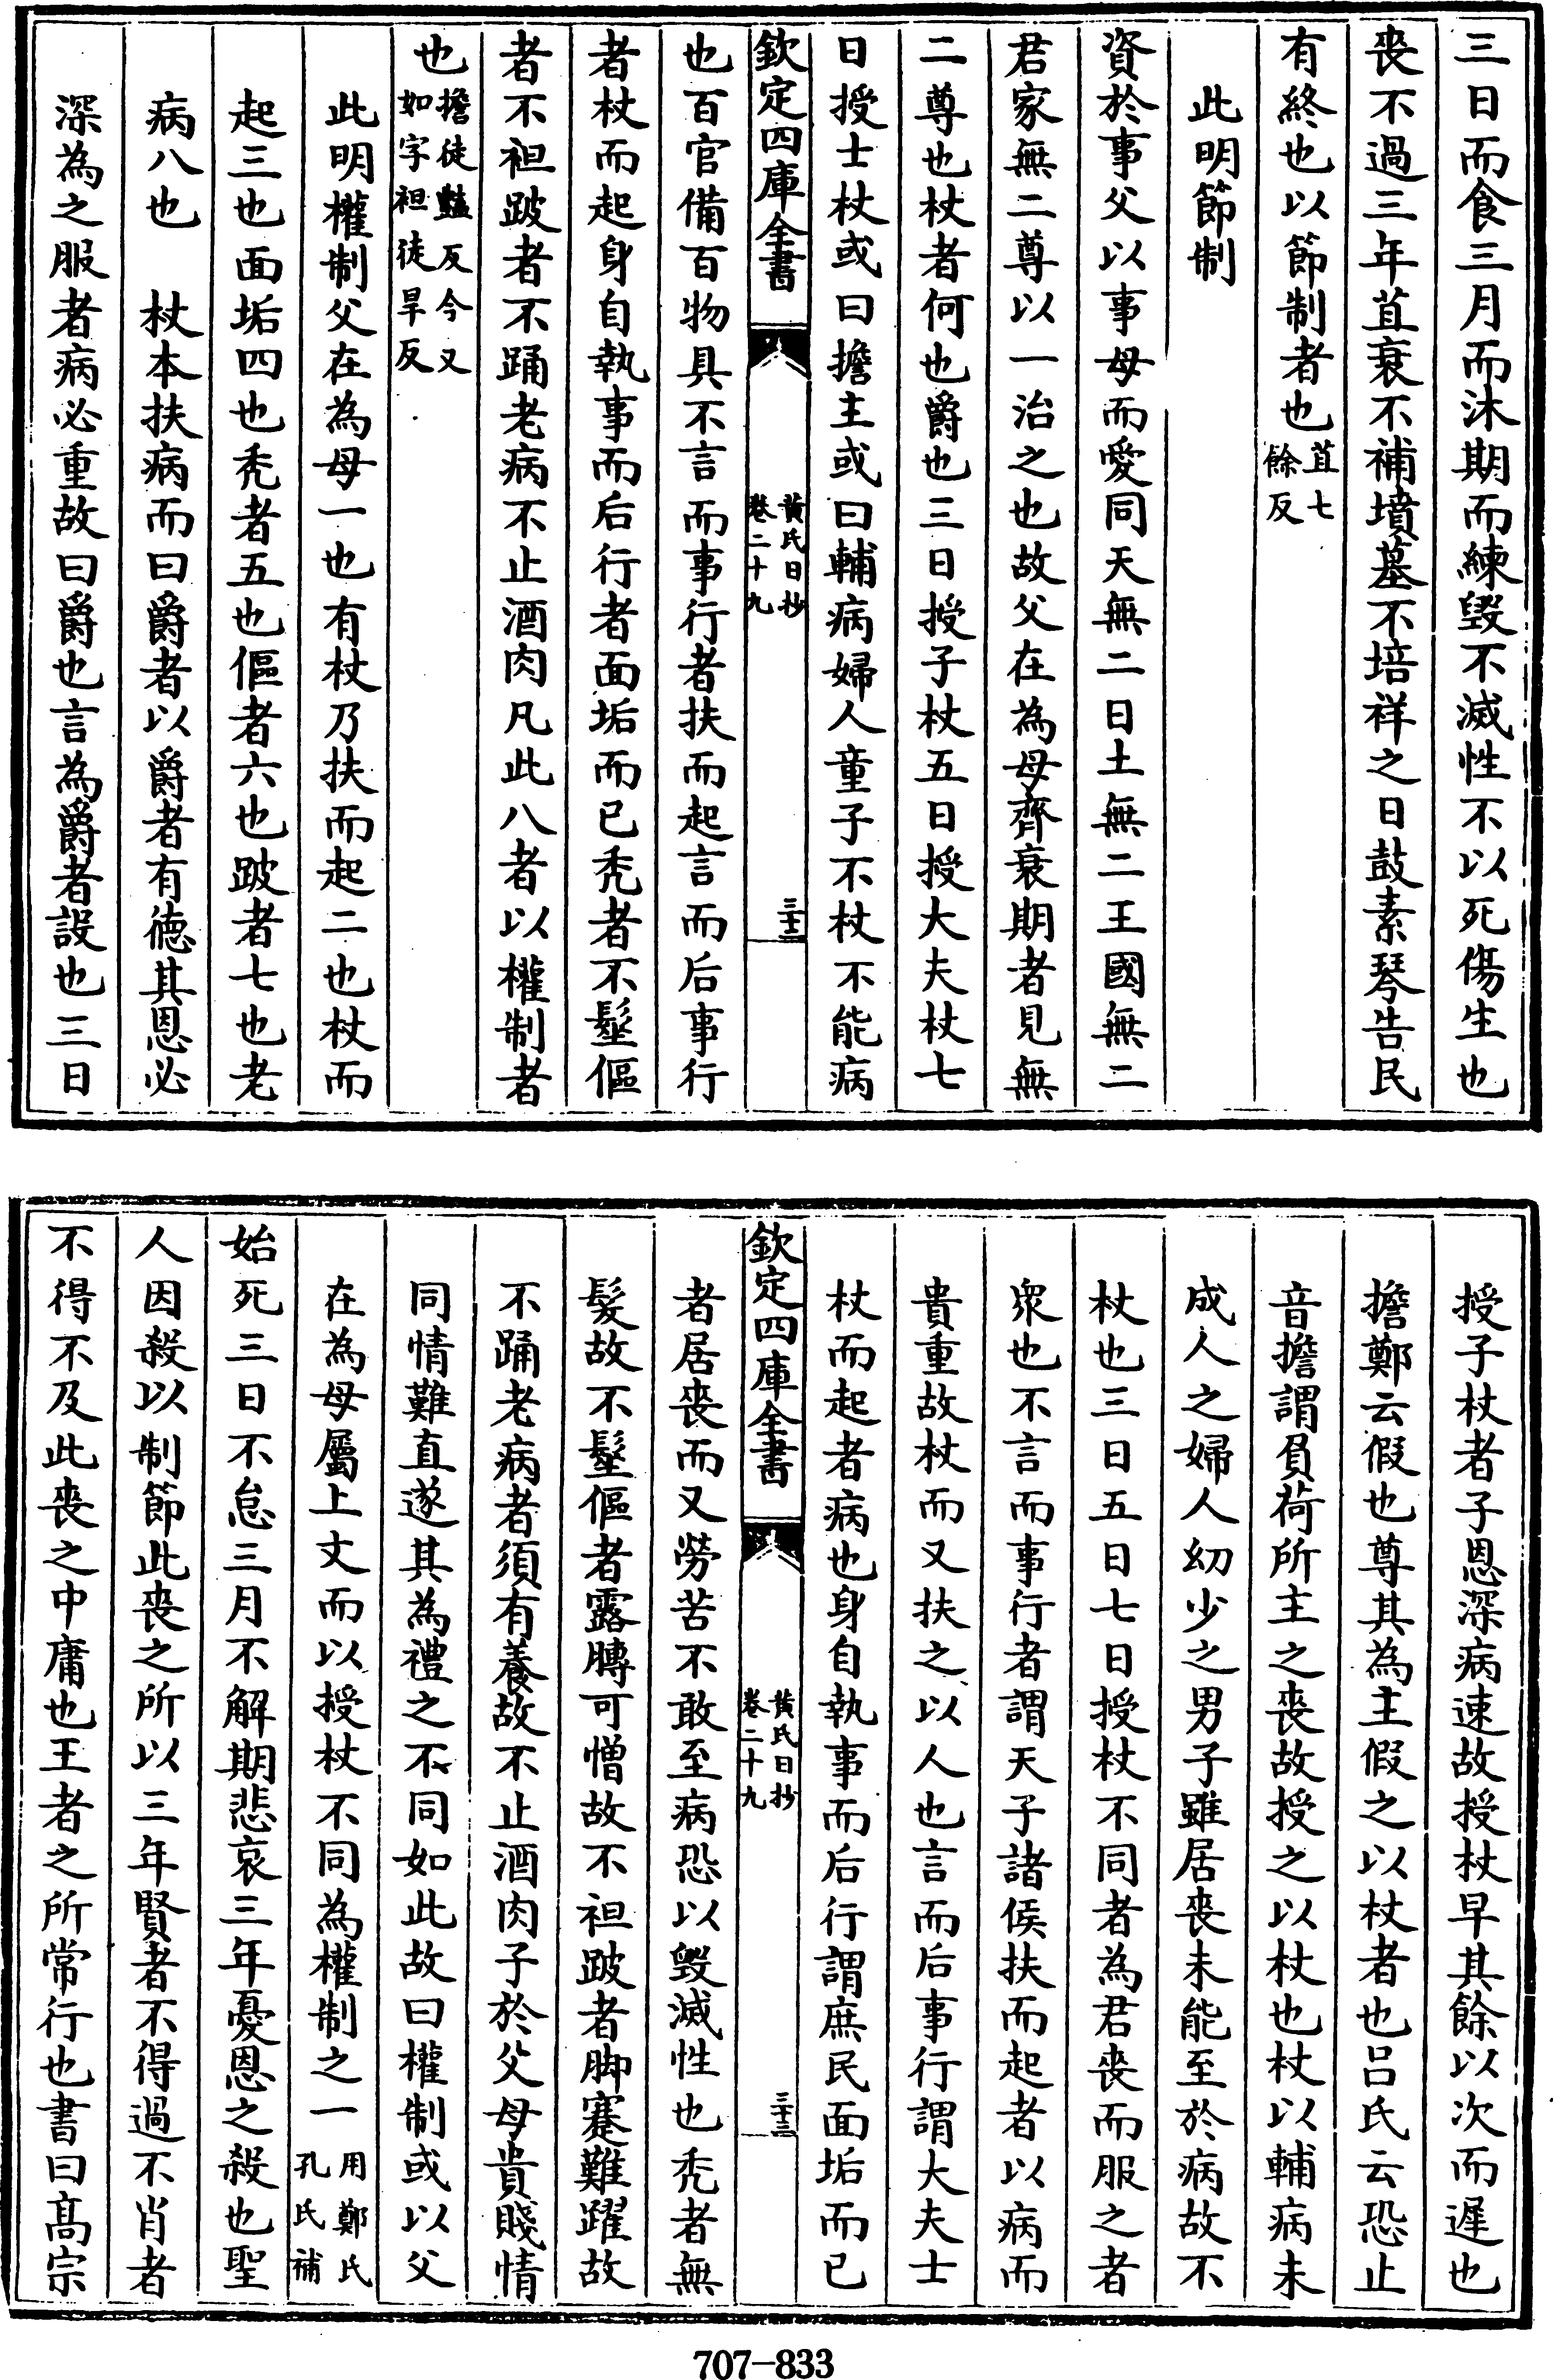 三日而食三月而沐期而練毀不滅性不以死傷生也
喪不過三年苴衰不補墳墓不培祥之日鼓素琴告民
有終也以節制者也苴七餘反
此明節制
資於事父以事母而愛同天無二日土無二王國無二
君家無二尊以一治之也故父在為母齊衰期者見無
二尊也杖者何也爵也三日授子杖五日授大夫杖七
日授士杖或曰擔主或曰輔病婦人童子不杖不能病
欽定四庫全書
黃氏日抄
卷二十九
三十二
也百官備百物具不言而事行者扶而起言而后事行
者杖而起身自執事而后行者面垢而已禿者不髽傴
者不袒跛者不踊老病不止酒肉凡此八者以權制者
也擔徒豔反今又如字袒徒旱反
此明權制父在為母一也有杖乃扶而起二也杖而
起三也面垢四也禿者五也傴者六也跛者七也老
病八也　杖本扶病而曰爵者以爵者有德其恩必
深為之服者病必重故曰爵也言為爵者設也三日
授子杖者子恩深病速故授杖早其餘以次而遲也
擔鄭云假也尊其為主假之以杖者也呂氏云恐止
音擔謂負荷所主之喪故授之以杖也杖以輔病未
成人之婦人幼少之男子雖居喪未能至於病故不
杖也三日五日七日授杖不同者為君喪而服之者
衆也不言而事行者謂天子諸侯扶而起者以病而
貴重故杖而又扶之以人也言而后事行謂大夫士
杖而起者病也身自執事而后行謂庶民面垢而已
欽定四庫全書
黃氏日抄
卷二十九
三十三
者居喪而又勞苦不敢至病恐以毀滅性也禿者無
髮故不髽傴者露膊可憎故不袒跛者脚蹇難躍故
不踊老病者須有養故不止酒肉子於父母貴賤情
同情難直遂其為禮之不同如此故曰權制或以父
在為母屬上文而以授杖不同為權制之一用鄭氏孔氏補
始死三日不怠三月不解期悲哀三年憂恩之殺也聖
人因殺以制節此喪之所以三年賢者不得過不肖者
不得不及此喪之中庸也王者之所常行也書曰髙宗
707-833